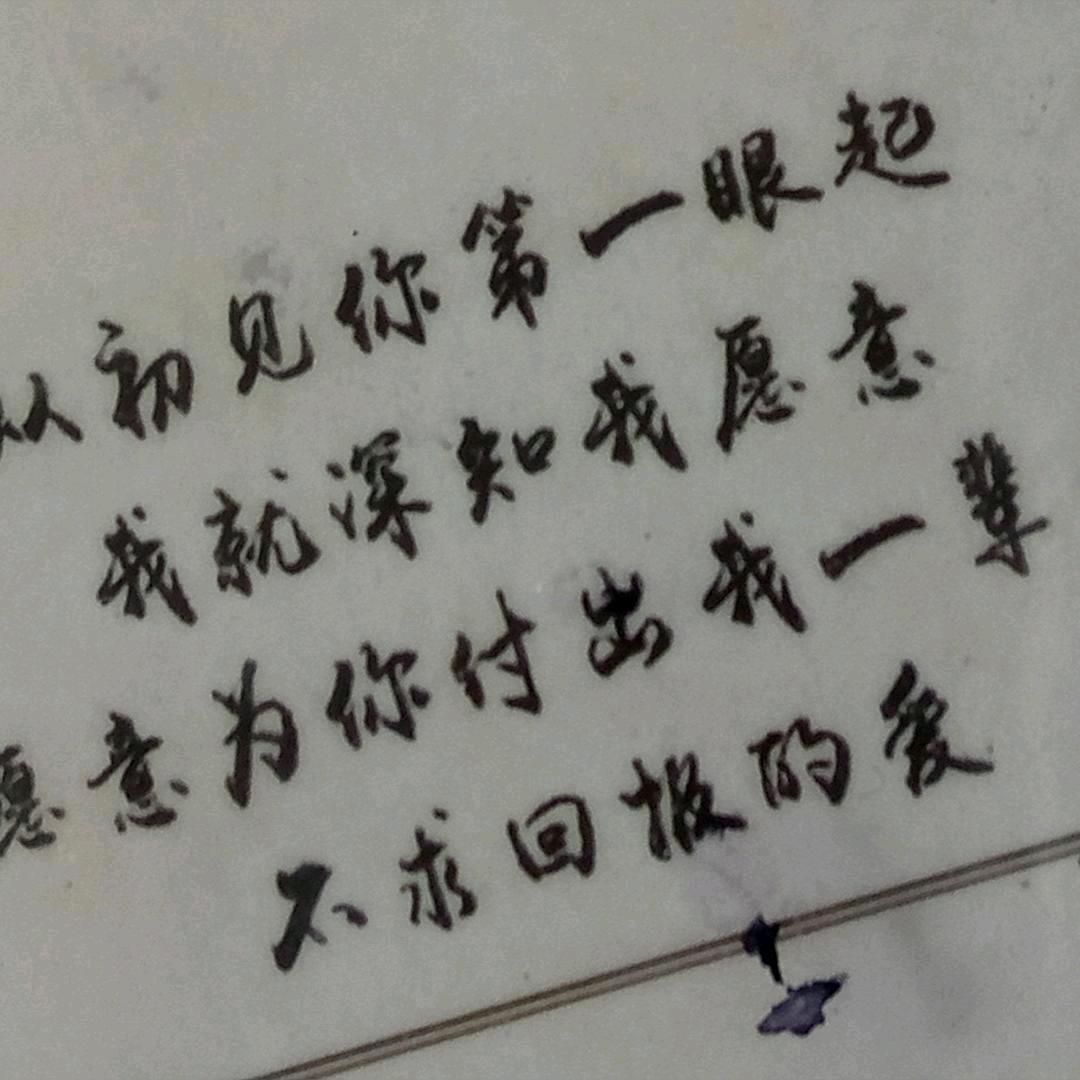 从初见你第一眼起
我就深知我愿意
愿意为你付出我一辈
不求回报的爱